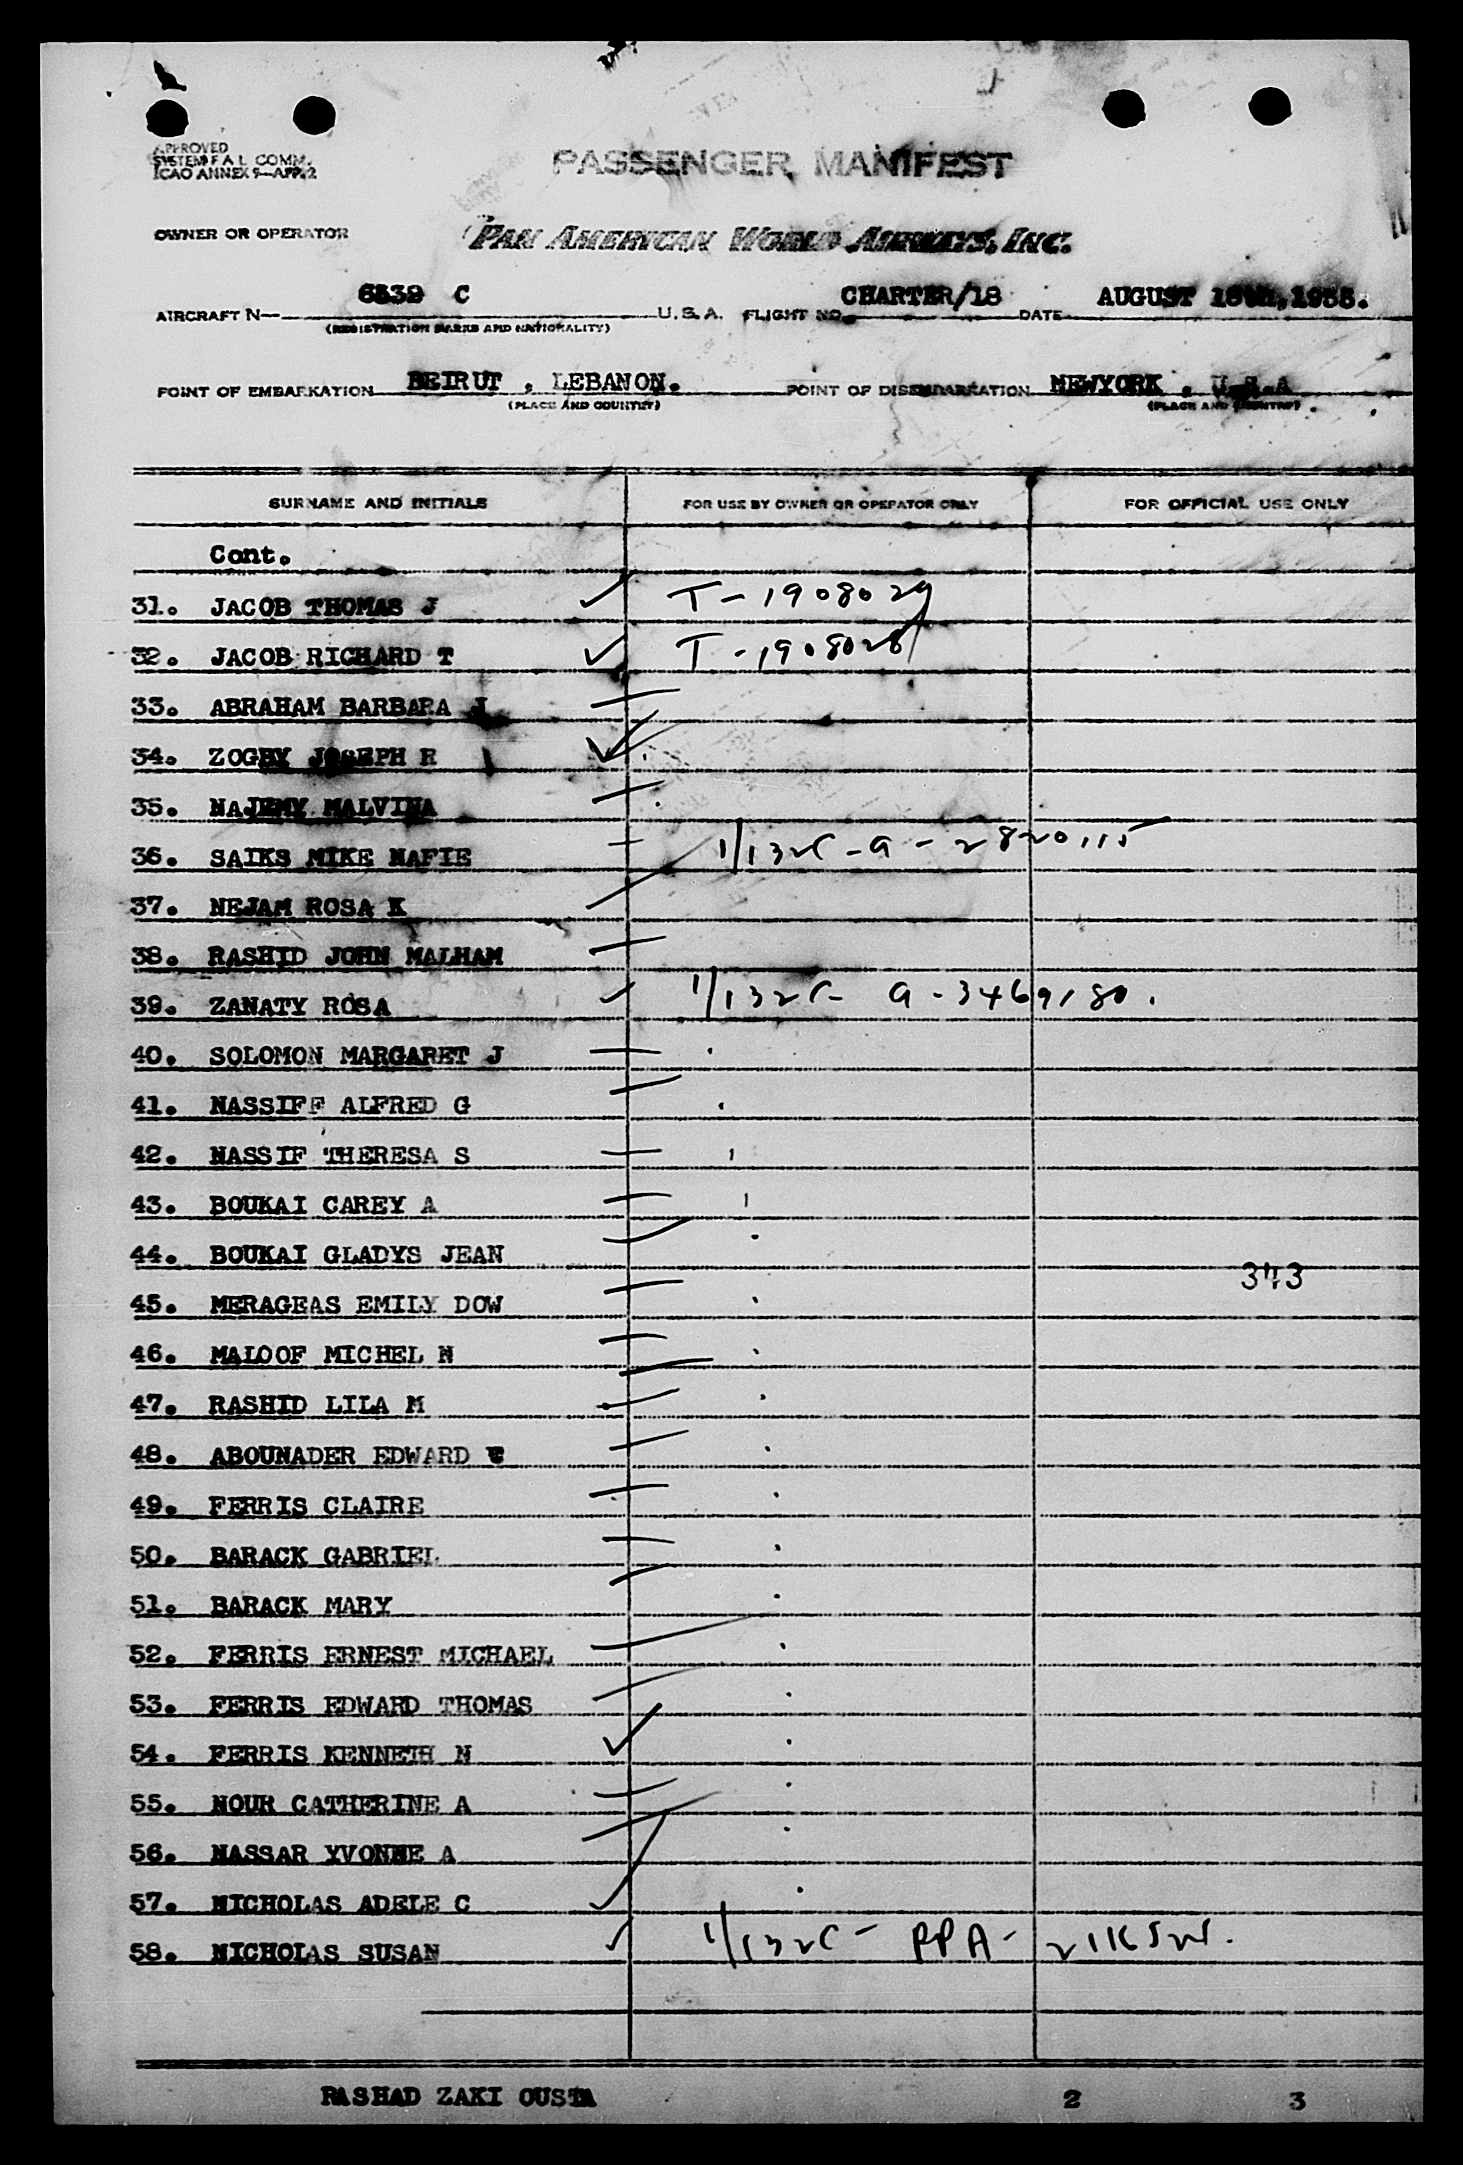 APPROVED
SYSTEM F A L COMM.
ICAO ANNEX 9—APP. 2
PASSENGER MANIFEST
OWNER OR OPERATOR
PAN AMERICAN WORLD AIRWAYS, INC.
AIRCRAFT N— 6539 C U.S.A. FLIGHT NO. CHARTER/18 DATE AUGUST
(REGISTRATION MARKS AND NATIONALITY)
POINT OF EMBARKATION BEIRUT , LEBANON. POINT OF DISEMBARKATION NEWYORK , U.S.A
(PLACE AND COUNTRY) (PLACE AND COUNTRY)
SURNAME AND INITIALS FOR USE BY OWNER OR OPERATOR ONLY FOR OFFICIAL USE ONLY
Cont.
31. JACOB THOMAS J T-1908029
32. JACOB RICHARD T T-1908028
33. ABRAHAM BARBARA J
34. ZOGBY JOSEPH R
35. NAJEMY MALVINA
36. SAIKS MIKE NAFIE 1/132C-a-2820115
37. NEJAM ROSA K
38. RASHID JOHN MALHAM
39. ZANATY ROSA 1/132C- a-3469180.
40. SOLOMON MARGARET J
41. NASSIFF ALFRED G
42. NASSIF THERESA S
43. BOUKAI CAREY A
44. BOUKAI GLADYS JEAN
343
45. MERAGEAS EMILY DOW
46. MALOOF MICHEL N
47. RASHID LILA M
48. ABOUNADER EDWARD
49. FERRIS CLAIRE
50. BARACK GABRIEL
51. BARACK MARY
52. FERRIS ERNEST MICHAEL
53. FERRIS EDWARD THOMAS
54. FERRIS KENNETH N
55. NOUR CATHERINE A
56. NASSAR YVONNE A
57. NICHOLAS ADELE C
58. NICHOLAS SUSAN 1/132C- PPA-
RASHAD ZAKI OUSTA 2 3